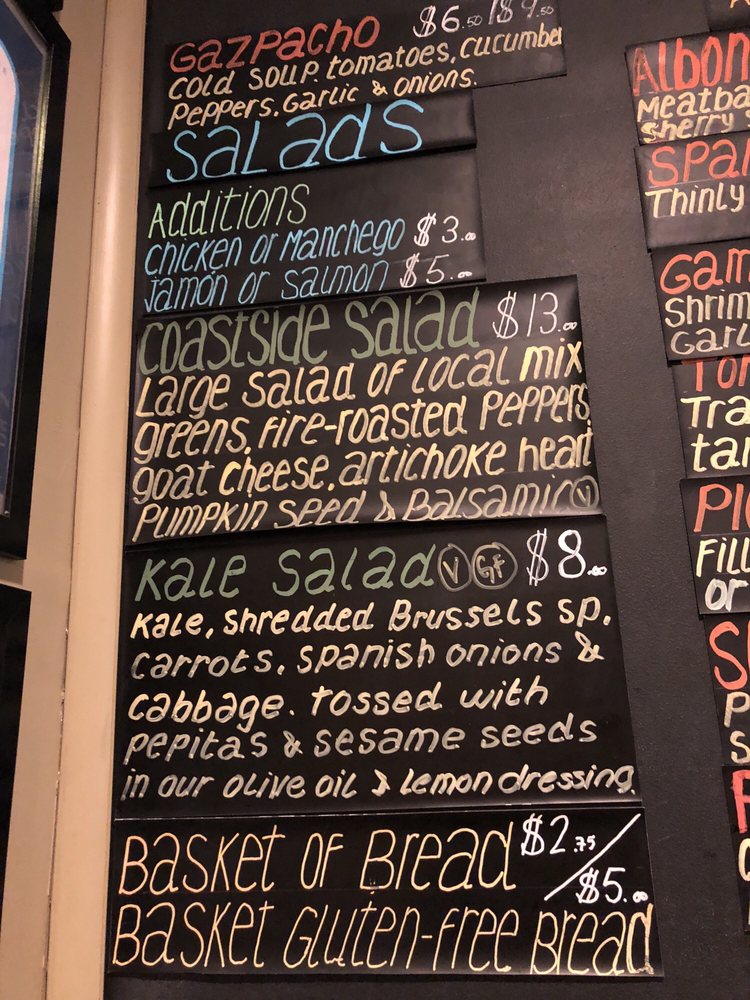 Gazpacho $6.50/$9.50
Cold soup. tomatoes, cucumber
Peppers, Garlic & onions.
Salads
Additions
Chicken or Manchego $3.00
Jamón or Salmon $5.00
Coastside Salad $13.00
Large Salad of Local mix
greens, fire-roasted Peppers
goat cheese, artichoke heart
Pumpkin Seed & Balsamic V
Kale Salad V GF $8.00
Kale, Shredded Brussels sp.
Carrots, Spanish onions &
Cabbage. Tossed with
Pepitas & Sesame seeds
in our olive oil & Lemon dressing.
Basket of Bread $2.75/$5.00
Basket Gluten-free Bread
Albon
Meatba
Sherry
Spa
Thinly
Gam
Shrim
Garl
Tor
Tra
tar
Fill
or